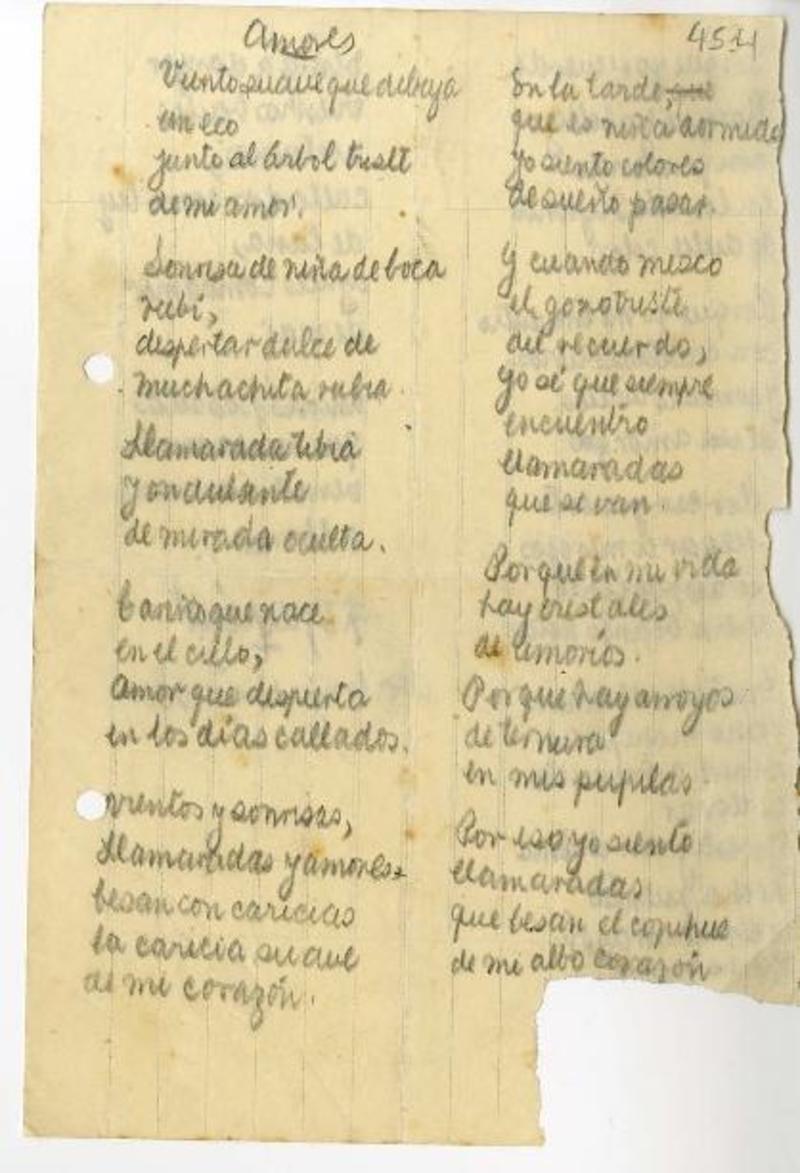 Amores
4521
Viento suave que dibuja
un eco
junto al árbol triste
de mi amor.
Sonrisa de niña de boca
rubí,
despertar dulce de
muchachita rubia.
Llamarada tibia
y ondulante
de mirada oculta.
Canción que nace
en el cielo,
Amor que despierta
en los días callados.
vientos y sonrisas,
llamaradas y amores
besan con caricias
la caricia suave
de mi corazón.
En la tarde, que
que es niña dormida
yo siento colores
de sueño pasar.
Y cuando mezco
el gozo triste
del recuerdo,
yo sé que siempre
encuentro
llamaradas
que se van.
Porque en mi vida
hay cristales
de amoríos.
Porque hay arroyos
de ternura
en mis pupilas
Por eso yo siento
llamaradas
que besan el copihue
de mi albo corazón